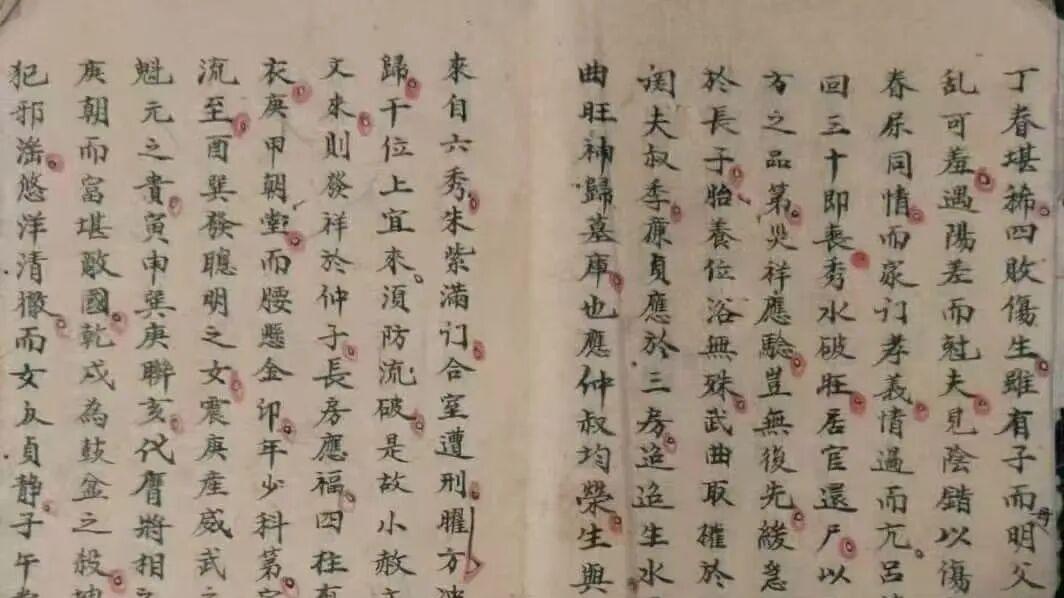 丁春堪稀四敗傷生雖有子而明父
乱可羞遇陽差而尅夫見陰錯以傷
春尿同情而家订孝義情過而亢吕
回三十即喪秀水破旺居官還尸以
方之品第灾祥應驗豈無後先緩急
於長子胎養位浴無殊武曲取權於
閨夫叔季廉貞應於三房迢迢生水
曲旺神歸墓庫也應仲叔均榮生與
來自六秀朱紫滿订合室遭刑曜方
歸干位上宜來須防流破是故小赦文
文來則發祥於仲子長房應福四柱有
衣庚甲朝堂而腰懸金卯年少科第
流至酉巽發聰明之女震庚産威武之
魁元之貴寅申巽庚聯亥代膺將相之
庚朝而富堪敵國乾戍為鼓盆之殺坤
犯邪滛悠洋清徹而女反貞静子午